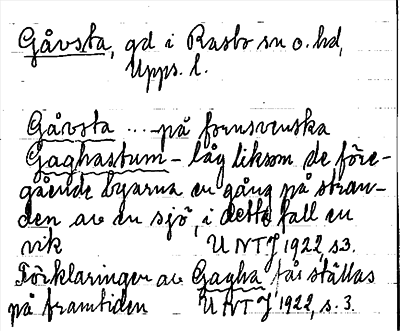 Gåvsta, gd i Rasbo sn o. hd,
Upps. l.
Gåvsta ... på fornsvenska
Gaghastum - låg liksom de före-
gående byarna en gång på stran-
den av en sjö, i detta fall en
vik UNT J 1922, s3.
Förklaringen av Gagha får ställas
på framtiden UNT J 1922, s. 3.